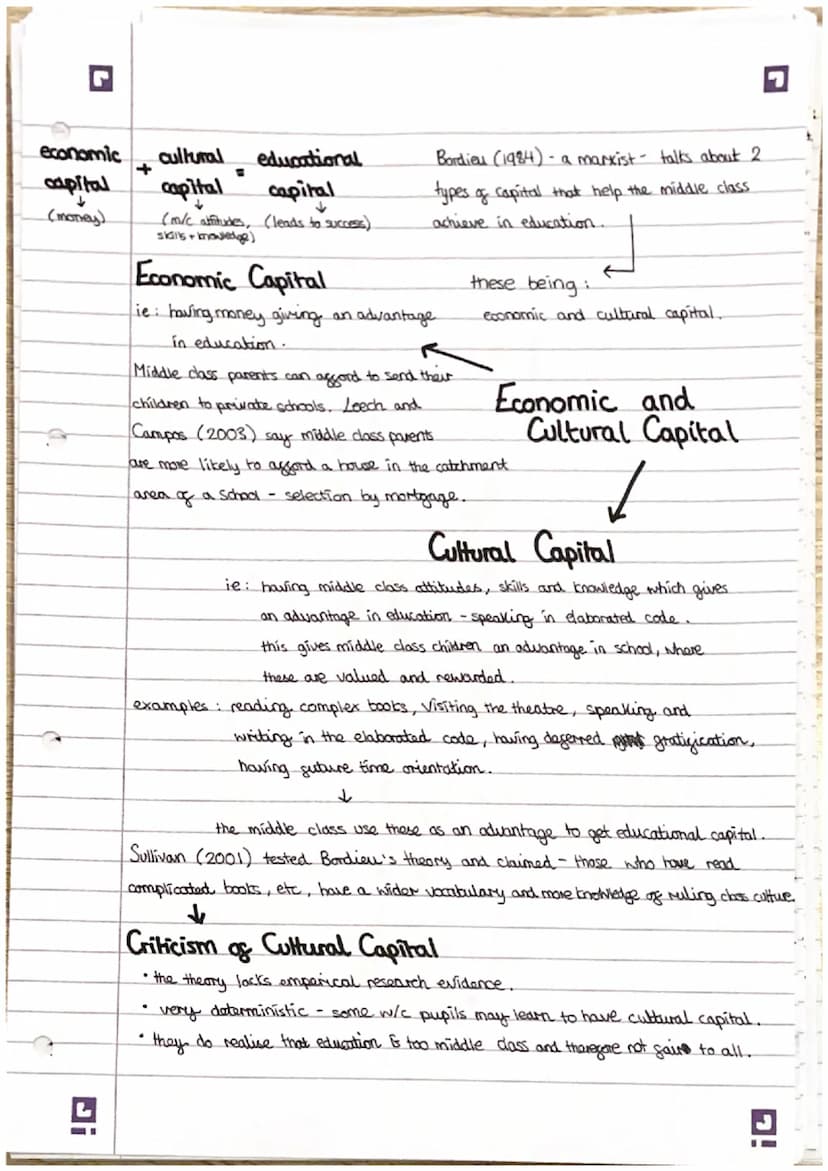 economic + cultural = educational
capital capital capital
(money) (m/c attitudes, (leads to success)
skills + knowledge)
Bordieu (1984) - a marxist - talks about 2
types of capital that help the middle class
achieve in education.
these being :
economic and cultural capital.
Economic Capital
ie : having money giving an advantage
in education.
Middle class parents can afford to send their
children to private schools. Leech and
Campos (2003) say middle class parents
are more likely to afford a house in the catchment
area of a school - selection by mortgage.
Economic and
Cultural Capital
Cultural Capital
ie : having middle class attitudes, skills and knowledge which gives
an advantage in education - speaking in elaborated code.
this gives middle class children an advantage in school, where
these are valued and rewarded.
examples : reading complex books, visiting the theatre, speaking and
writing in the elaborated code, having deferred gratification,
having future time orientation.
the middle class use these as an advantage to get educational capital.
Sullivan (2001) tested Bordieu's theory and claimed - those who have read
complicated books, etc, have a wider vocabulary and more knowledge of ruling class culture.
Criticism of Cultural Capital
• the theory lacks emparical research evidence.
• very deterministic - some w/c pupils may learn to have cultural capital.
• they do realise that education is too middle class and therefore not fair to all.